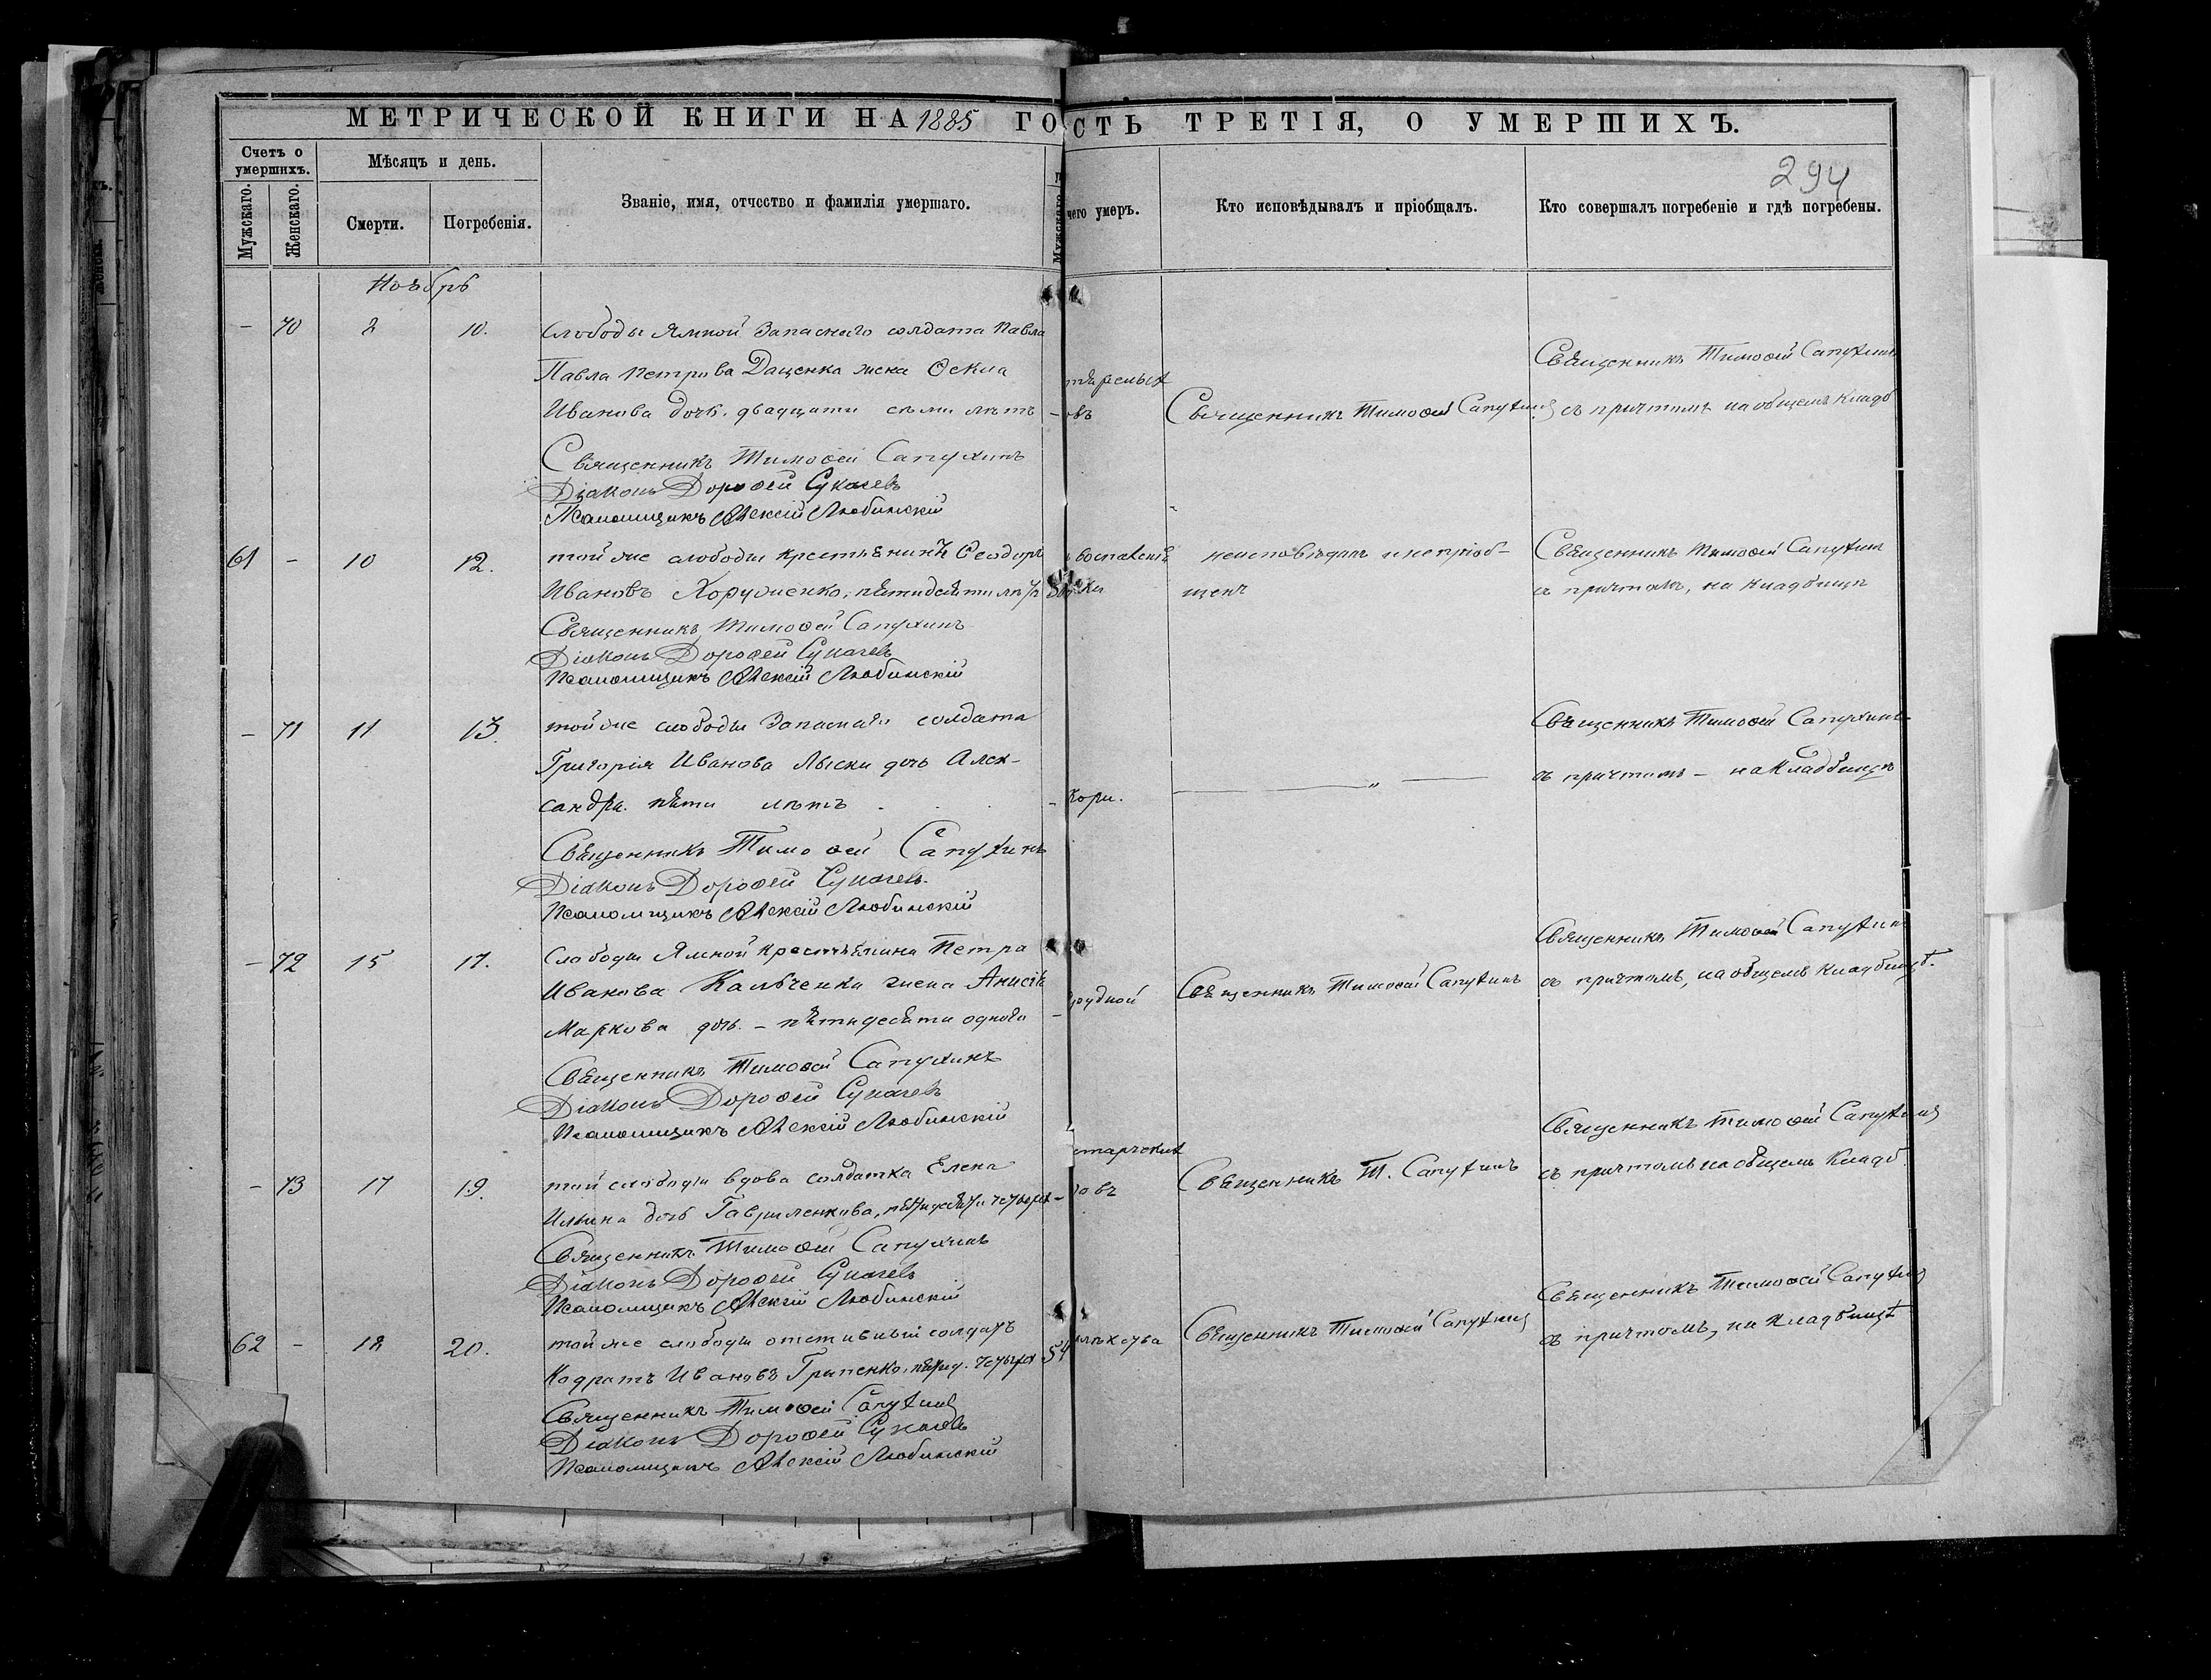 МЕТРИЧЕСКОЙ КНИГИ НА 1885 ГО
СТЬ ТРЕТІЯ, О УМЕРШИХЪ.
294
Счетъ о умершихъ.
Мѣсяцъ и день.
Званіе, имя, отчество и фамилія умершаго.
Мужскаго.
Женскаго.
Смерти.
Погребенія.
Мужскаго
чего умеръ.
Кто исповѣдывалъ и пріобщалъ.
Кто совершалъ погребеніе и гдѣ погребены.
Ноябрь
– 70 2 10.
Слободы Ямной Запаснаго солдата Павла
Павла Петрова Даценка жена
Иванова дочь. двадцати семи лѣтъ –
овъ
Священникъ Тимоѳей Сапухинъ
Священникъ Тимоѳей Сапухинъ
съ причтомъ на общемъ кладб
Священникъ Тимоѳей Сапухинъ
Діаконъ Дороѳей Сукачевъ
Псаломщикъ Алексій Любинскій
61 – 10 12.
той же слободы крестьянинъ Ѳеодоръ
Ивановъ Хоруженко, пятидесяти лѣтъ
воспаленія
неисповѣданъ и не пріоб-
щенъ
Священникъ Тимоѳей Сапухинъ
съ причтомъ, на кладбищѣ
Священникъ Тимоѳей Сапухинъ
Діаконъ Дороѳей Сукачевъ
Псаломщикъ Алексій Любинскій
– 71 11 13.
той же слободы Запаснаго солдата
Григорія Иванова Лыски дочь Алек-
сандра. пяти лѣтъ . . . –
Кори.
— — „ —
Священникъ Тимоѳей Сапухинъ
съ причтомъ – на Кладбищѣ
Священникъ Тимоѳей Сапухинъ
Діаконъ Дороѳей Сукачевъ.
Псаломщикъ Алексій Любинскій
– 72 15 17.
Слободы Ямной крестьянина Петра
Иванова Кальченки жена Анисія
Маркова дочь. – пятидесяти одного –
рудной
Священникъ Тимоѳей Сапухинъ
Священникъ Тимоѳей Сапухинъ
съ причтомъ, на общемъ кладбищѣ.
Священникъ Тимоѳей Сапухинъ
Діаконъ Дороѳей Сукачевъ
Псаломщикъ Алексій Любинскій
– 73 17 19.
той слободы вдова солдатка Елена
Ильина дочь Гавриленкова, пятидесяти четырех –
старческих
овъ
Священникъ Т. Сапухинъ
Священникъ Тимоѳей Сапухинъ
съ причтомъ на общемъ Кладб.
Священникъ Тимоѳей Сапухинъ
Діаконъ Дороѳей Сукачевъ
Псаломщикъ Алексій Любинскій
62 – 18 20.
той же слободы отставный солдатъ
Кодратъ Ивановъ Грипенко, пятид. четырех 54
Священникъ Тимоѳей Сапухинъ
Священникъ Тимоѳей Сапухинъ
съ причтомъ, на кладбищѣ
Священникъ Тимоѳей Сапухинъ
Діаконъ Дороѳей Сукачевъ
Псаломщикъ Алексій Любинскій